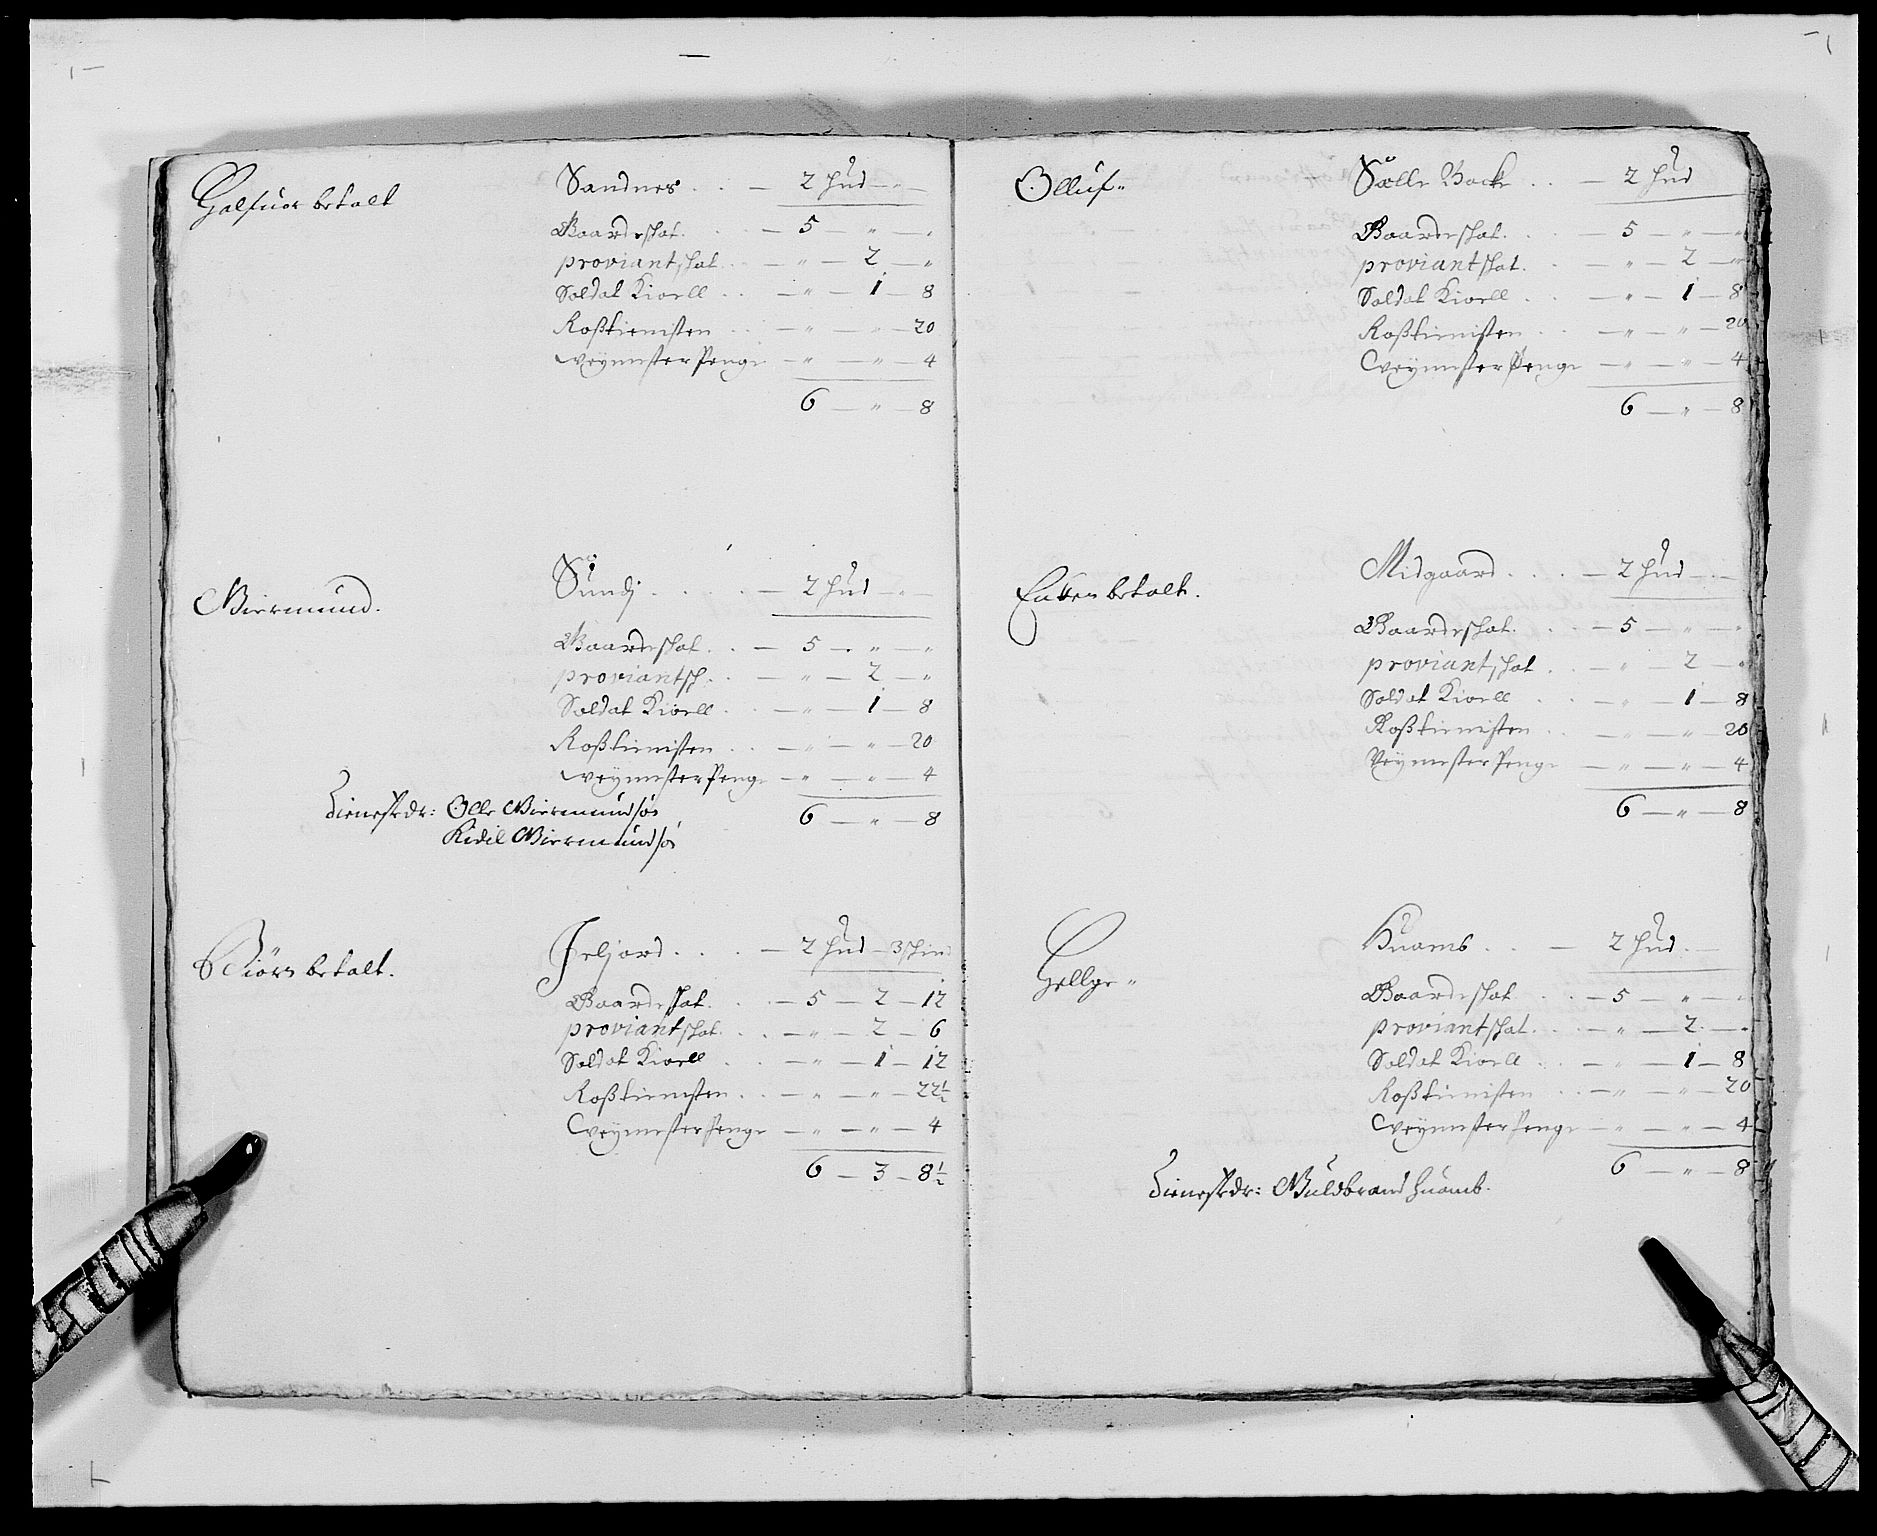 Halfuor betalt Sandnes . . — 2 Hud — " —
Gaardeskat . . — 5 — " — "
proviantskat . . — " — 2 — "
Soldat Kioell . . — " — 1 — 8
Roßtienisten . . — " — " — 20
Weymester Penge — " — " — 4
6 — " — 8
Giermund. Sundj . . . . — 2 Hud — " —
Gaardeskat . . — 5 — " — "
proviantsk . . — " — 2 — "
Soldat Kioell . . — " — 1 — 8
Roßtienisten . . — " — " — 20
Weymester Penge — " — " — 4
Tienestdr: Olle Giermundsøn 6 — " — 8
Kidil Giermundsøn
Biørn betalt. Jeljord . . . . — 2 Hud — 3 skind
Gaardeskat . . — 5 — 2 — 12
proviantskat . . — " — 2 — 6
Soldat Kioell . . — " — 1 — 12
Roßtienisten . . — " — " — 22½
Weymester Penge — " — " — 4
6 — 3 — 8½
Olluf " Sælle Backe . . — 2 Hud
Gaardeskat . . — 5 — " — "
proviantskat . . — " — 2 — "
Soldat Kioell . . — " — 1 — 8
Roßtienisten . . — " — " — 20
Weymester Penge — " — " — 4
6 — " — 8
Enken betalt. Midgaard . . . — 2 Hud — " —
Gaardeskat . . — 5 — " — "
proviantskat . . — " — 2 — "
Soldat Kioell . . — " — 1 — 8
Roßtienisten . . — " — " — 20
Veymester Penge — " — " — 4
6 — " — 8
Hellge " Huamb . . — 2 Hud . —
Gaardeskat . . — 5 — " — "
proviantskat . . — " — 2 — "
Soldat Kioell . . — " — 1 — 8
Roßtienisten . . — " — " — 20
Weymester Penge — " — " — 4
6 — " — 8
Tienestdr: Guldbrand Huamb.